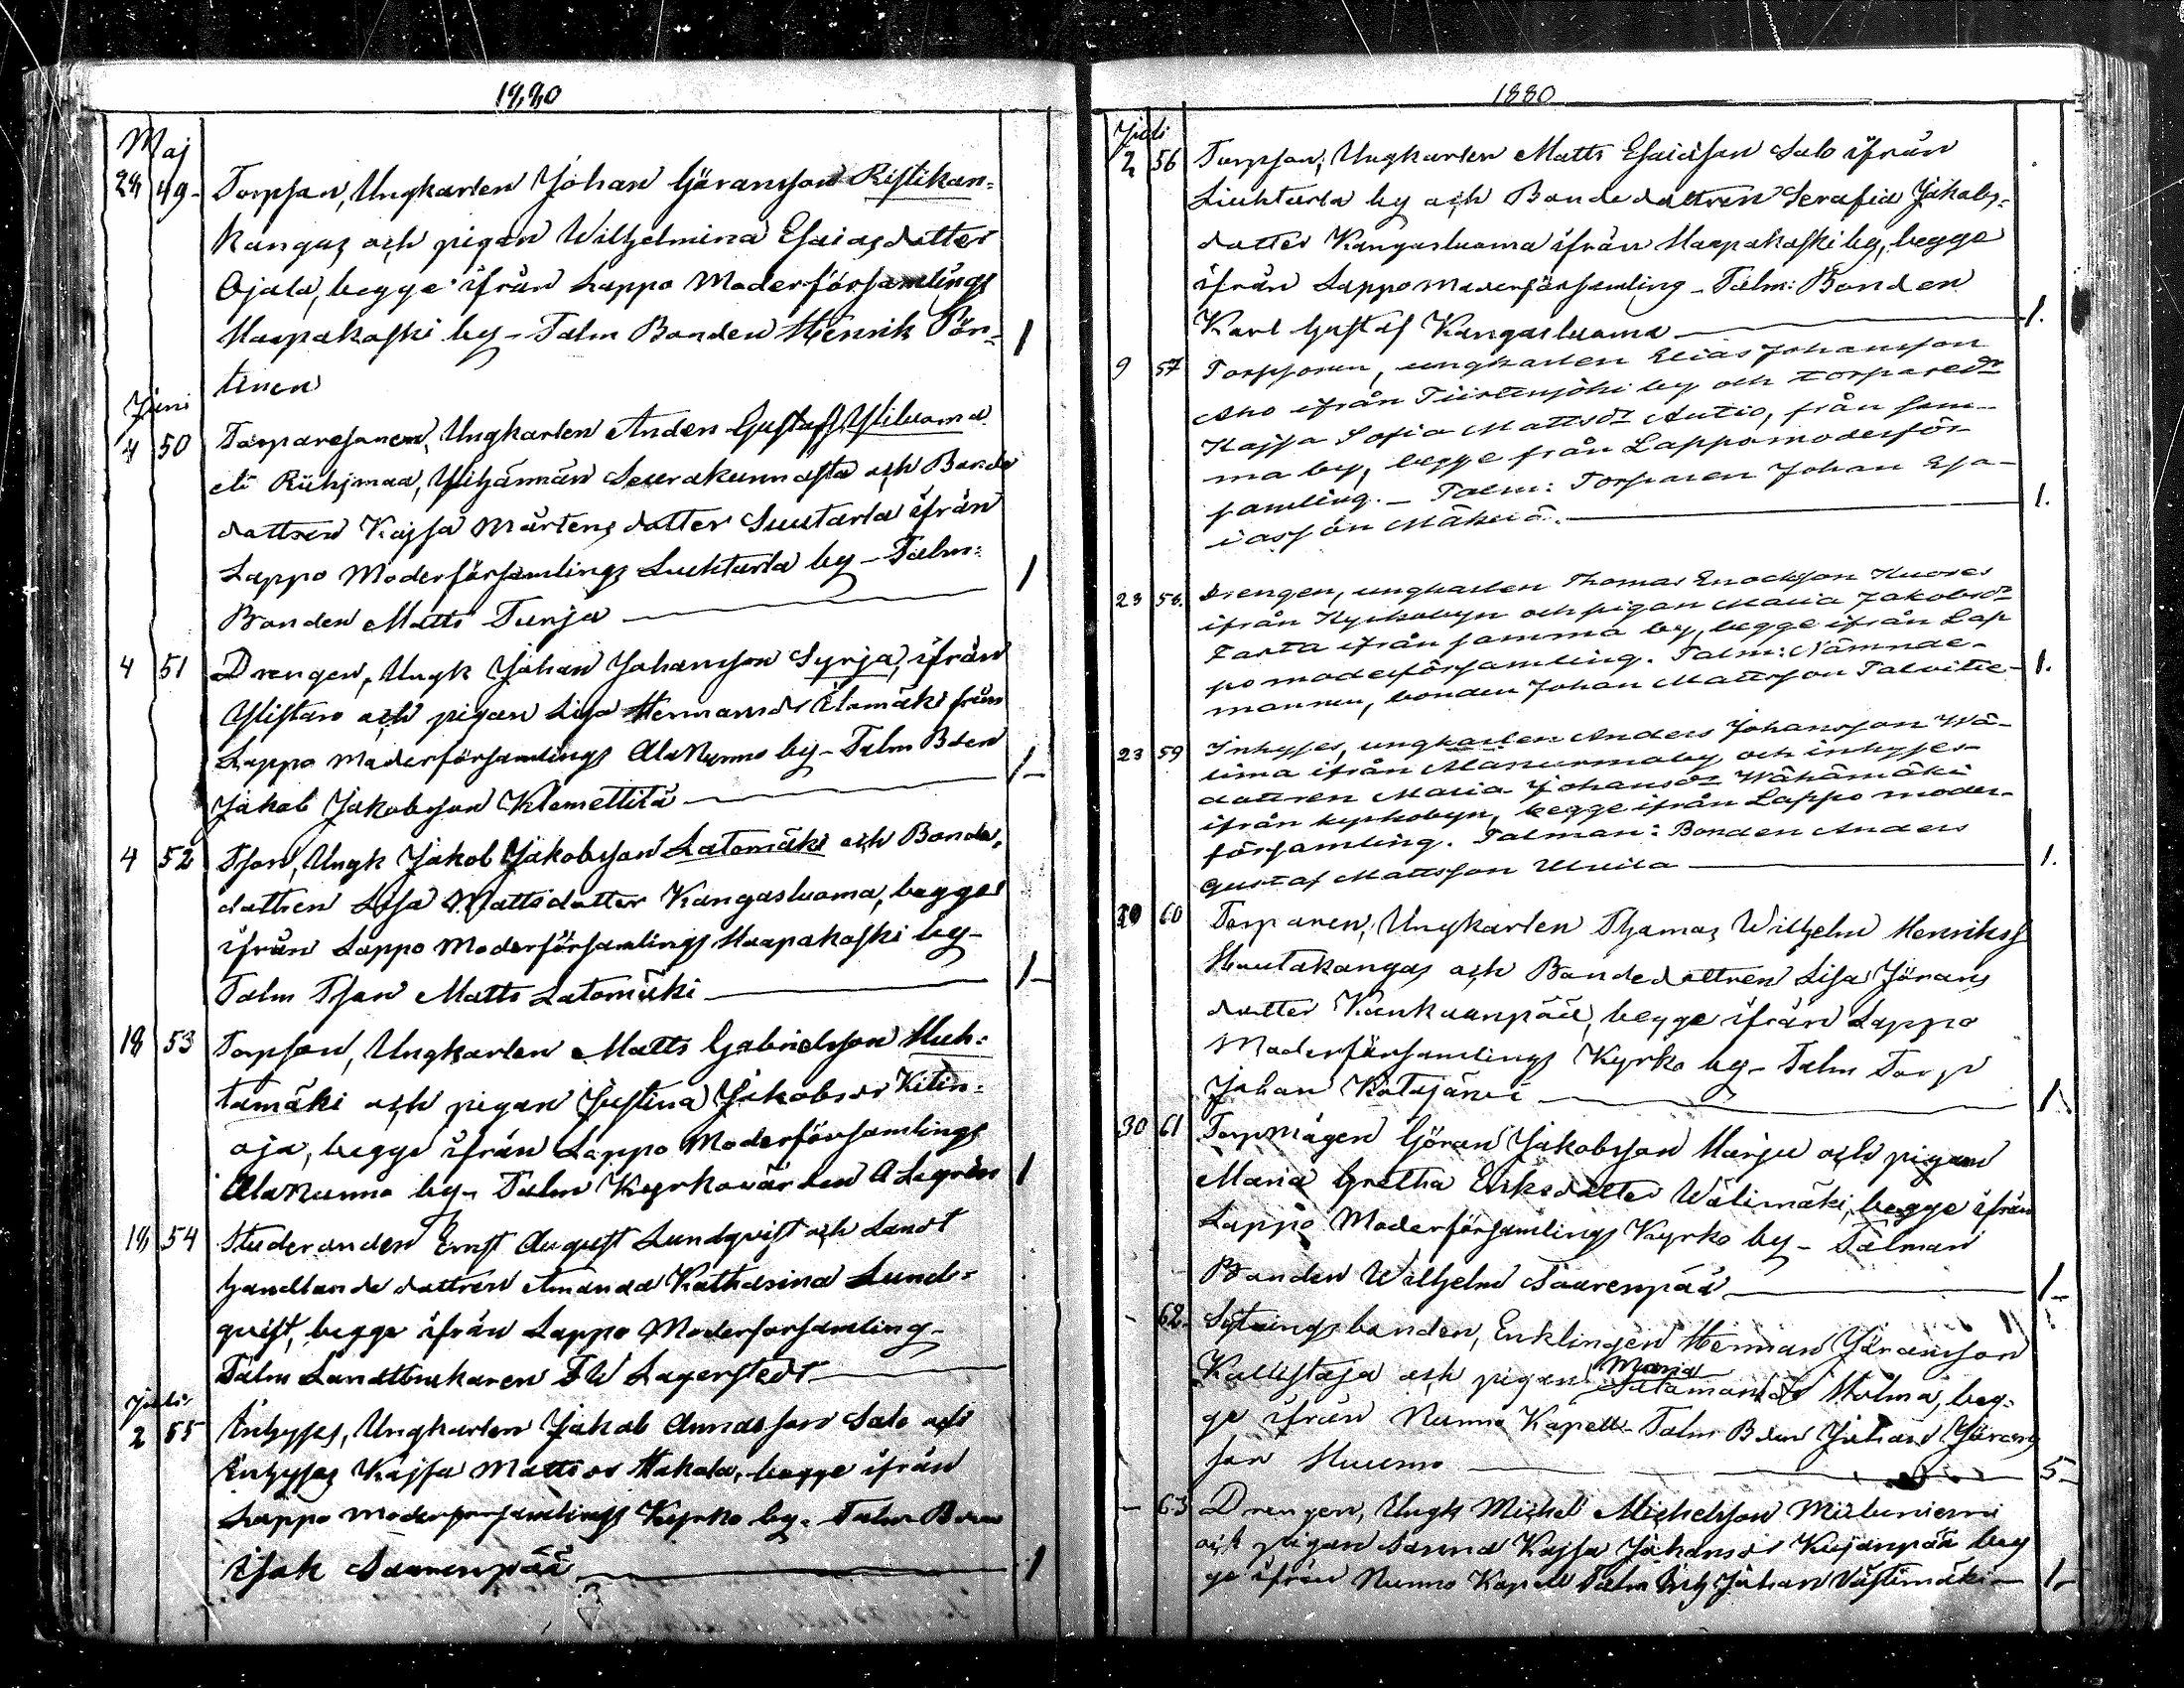 1880
Maj
28 49. Torpson, Ungkarlen Johan Göransson Ristikan-
kangas och pigan Wilhelmina Esaiasdotter
Ojala, begge ifrån Lappo Moderförsamlings
Haapakoski by - Talm Bonden Henrik Pön-
tinen 1
Juni
4 50 Torparesonen, Ungkarlen Anders Gustafss Yliluoma
eli Riihimaa, Ylihärmän Seurakunnasta och Bonde
dattren Kajsa Mårtens dotter Luutarla ifrån
Lappo Moderförsamlings Luhtarla by - Talm:
Bonden Matts Turja 1
4 51 Drengen, Ungk Johan Johansson Syrja, ifrån
Ylistaro och pigan Lisa Hermansdr Elomäki från
Lappo Moderförsamlings AlaNurmo by - Talm Bden
Jakob Jakobsson Klemettilä 1-
4 52 Tson, Ungk Jakob Jakobsson Latomäki och Bonde,
dattren Lisa Mattsdotter Kangasluoma, begge
ifrån Lappo Moderförsamlings Haapakoski by -
Talm Tson Matts Latomäki 1-
18 53 Torpson, Ungkarlen Matts Gabrielsson Huh-
tamäki och pigan Justina Jakobsdr Kitin-
oja, begge ifrån Lappo Moderförsamlings
AlaNurmo by - Talm Kyrkovärden A Legrén 1
18 54 Studeranden Ernst August Lundqvist och Landt
handlande dattren Amanda Katharina Lund-
qvist, begge ifrån Lappo Moderforsamling -
Talm Landtbrukaren F W Lagerstedt
Juli
2 55 Inhyses, Ungkarlen Jakob Annasson Salo och
Inhyses Kajsa Mattsdr Hakala, begge ifrån
Lappo Moderforsamlings Kyrko by - Talm Bden
Isak Saarenpää 1
1880
Juli
2 56 Torpson, Ungkarlen Matts Esaiason Salo ifrån
Liuhtarla by och Bondedattren Serafia Jakobs-
dotter Kangasluoma ifrån Haapakoski by, begge
ifrån Lappo Moderförsamling - Talm: Bonden
Karl Gustaf Kangasluoma 1.
9 57 Torpsonen, ungkarlen Elias Johansson
Aho ifrån Tiistenjoki by och torparedr
Kajsa Sofia Mattsdr Autio, från sam-
ma by, begge från Lappomoderför-
samling. - Talm: Torparen Johan Esa-
iasson Mäkelä. 1.
23 58. Drengen, ungkarlen Thomas Enocksson Kuores
ifrån Kyrkobyn och pigan Maria Jakobsdr
Tasta ifrån samma by, begge ifrån Lap
pomoderförsamling. Talm: Nämnde-
mannen, bonden Johan Mattsson Talvitie 1.
23 59 Inhyses, ungkarlen Anders Johansson Wä-
lima ifrån Alanurmoby och inhyses-
dattren Maria Johansdr Wähämäki
ifrån kyrkobyn, begge ifrån Lappo moder-
församling. Talman: Bonden Anders
Gustaf Mattsson Ulvila 1.
30 60 Torparen, Ungkarlen Thomas Wilhelm Henrikss
Hautakangas och Bondedattren Lisa Jörans
dotter Kankaanpää, begge ifrån Lappo
Moderförsamlings Kyrko by - Talm Torp
Johan Katajarvi 1
30 61 Torpmågen Göran Jakobsson Harju och pigan
Maria Gretha Eriksdotter Wälimäki, begge ifrån
Lappo Moderförsamlings Kyrko by - Talman
Bonden Wilhelm Saarenpää 1-
- 62. Sytningsbonden, Enklingen Herman Göransson
Kallistaja och pigan Maria Holma, beg-
ge ifrån Nurmo Kapell - Talm Bden Johan Görans
son Huumo 5-
- 63 Drengen, Ungk Michel Michelsson
och pigan Sanna Kajsa Johansdr Kujanpää beg
ge ifrån Nurmo Kapell Talm Inh Johan Västimäki 1-